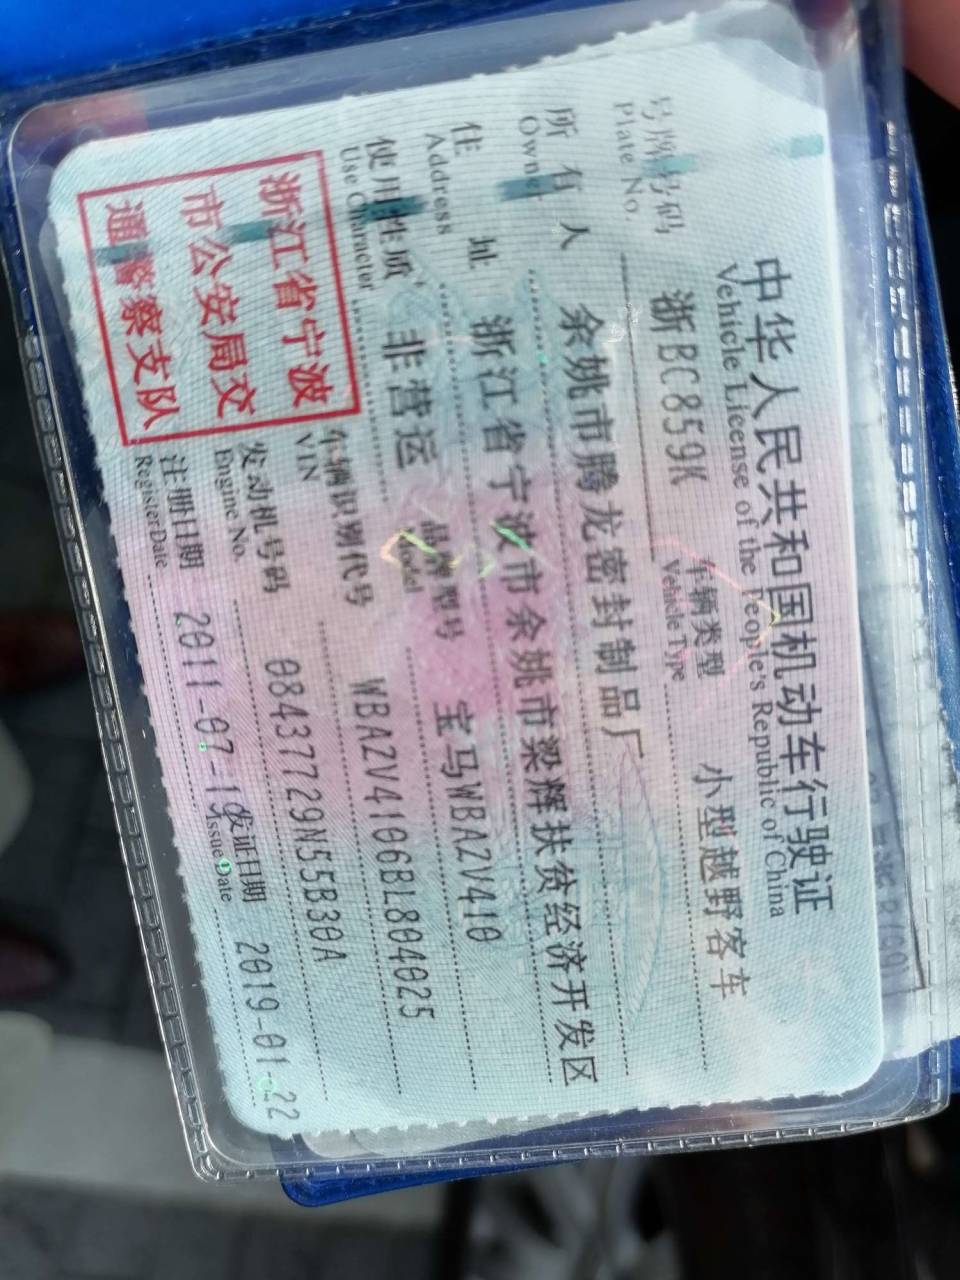 中华人民共和国机动车行驶证
Vehicle License of the People's Republic of China
号牌号码 浙BC859K 车辆类型 小型越野客车
Plate No. Vehicle Type
所有人 余姚市腾龙密封制品厂
Owner
住址 浙江省宁波市余姚市梁辉扶贫经济开发区
Address
使用性质 非营运 品牌型号 宝马WBAZV410
Use Character Model
浙江省宁波
市公安局交
通警察支队
车辆识别代号 WBAZV4106BL804025
VIN
发动机号码 08437729N55B30A
Engine No.
注册日期 2011-07-19 发证日期 2019-01-22
Register Date Issue Date